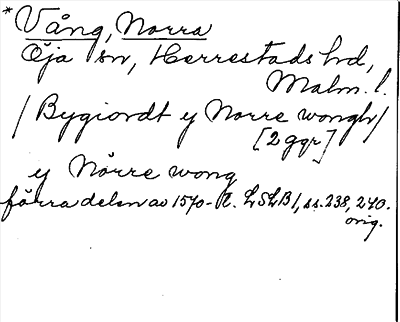 *Vång, Norra
Öja sn, Herrestads hd,
Malm. l.
/Bygiordt y Norre wongh/
[2 ggr]
y Nörre wong
förra delen av 1570-t. LSLB1, ss. 238, 240.
orig.